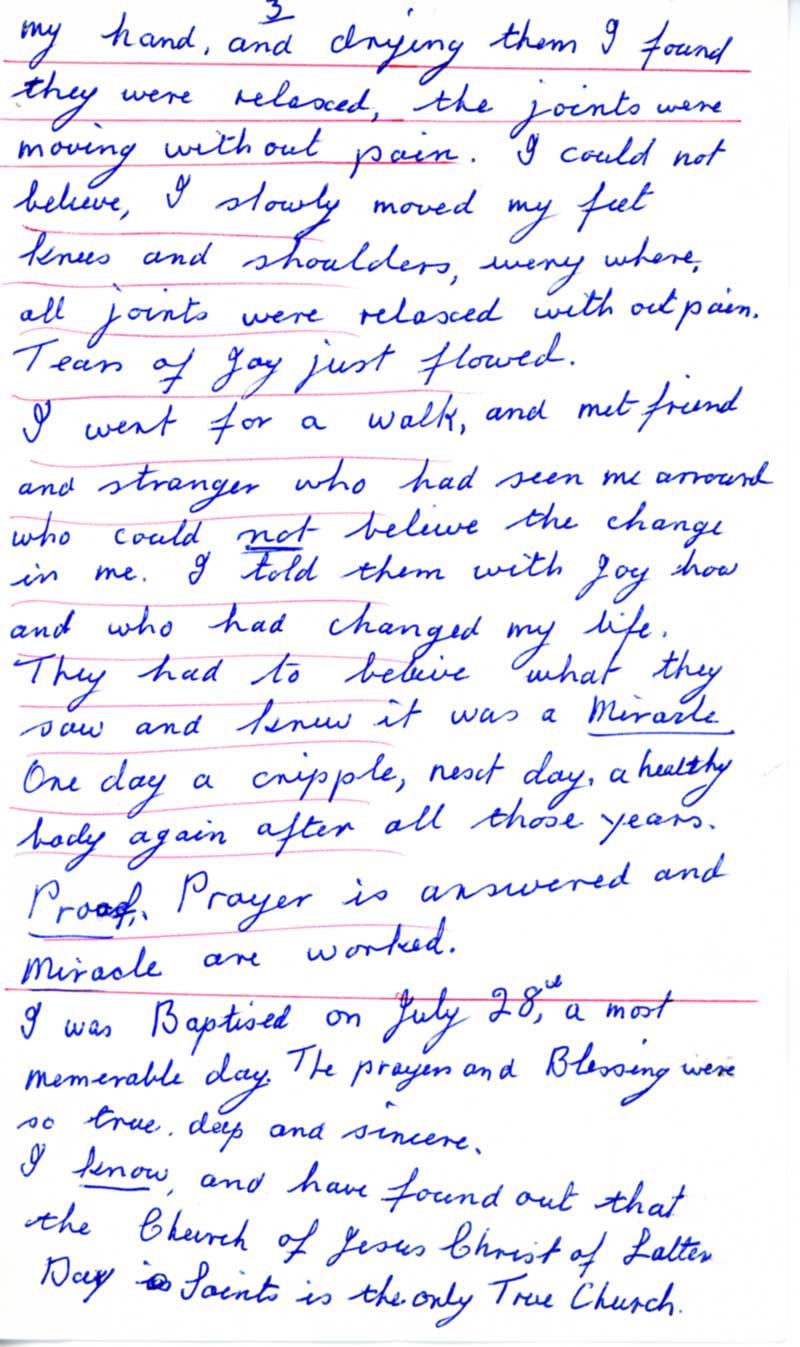 3
my hand, and drying them I found
they were relaxed, the joints were
moving without pain. I could not
believe, I slowly moved my feet
knees and shoulders, every where,
all joints were relaxed with out pain.
Tears of Joy just flowed.
I went for a walk, and met friend
and stranger who had seen me arround
who could not believe the change
in me. I told them with Joy how
and who had changed my life.
They had to beleive what they
saw and knew it was a Miracle
One day a cripple, next day, a healthy
body again after all those years.
Proof, Prayer is answered and
Miracle are worked.
I was Baptised on July 28, a most
memerable day. The prayers and Blessing were
so true. deep and sincere.
I know, and have found out that
the Church of Jesus Christ of Latter
Day Saints is the only True Church.